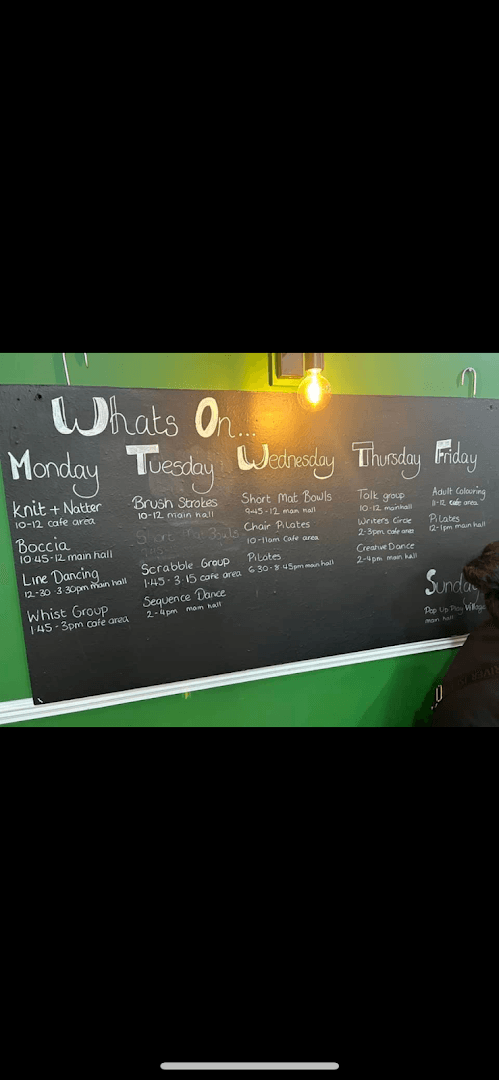 Whats On...
Monday
Knit + Natter
10-12 cafe area
Boccia
10.45-12 main hall
Line Dancing
12-30-3.30pm main hall
Whist Group
1.45-3pm cafe area
Tuesday
Brush Strokes
10-12 main hall
Short Mat Bowls
Scrabble Group
1.45-3.15 cafe area
Sequence Dance
2-4pm main hall
Wednesday
Short Mat Bowls
9.45-12 main hall
Chair Pilates
10-11am Cafe area
Pilates
6.30-8.45pm main hall
Thursday
Talk group
10-12 mainhall
Writers Circle
2-3pm cafe area
Creative Dance
2-4pm main hall
Friday
Adult Colouring
11-12 cafe area
Pilates
12-1pm main hall
Sunday
Pop Up Play Village
main hall